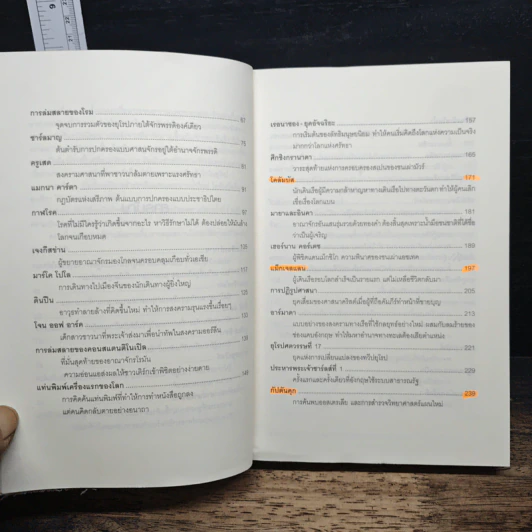 การล่มสลายของโรม 67
จุดจบการรวมตัวของยุโรปภายใต้จักรพรรดิองค์เดียว
ชาร์ลมาญ 75
ต้นตำรับการปกครองแบบศาสนจักรอยู่ใต้อำนาจจักรพรรดิ
ครูเสด
สงครามศาสนาที่พาชาวนาล้มตายเพราะแรงศรัทธา
แมกนา คาร์ตา
กฎบัตรแห่งเสรีภาพ ต้นแบบการปกครองแบบประชาธิปไตย
กาฬโรค
โรคที่ไม่มีใครรู้ว่าเกิดขึ้นจากอะไร หาวิธีรักษาไม่ได้ ต้องปล่อยให้มันล้าง
โลกจนเกือบหมด
เจงกีสข่าน
ผู้ขยายอาณาจักรมองโกลจนครอบคลุมเกือบทั่วเอเชีย
มาร์โค โปโล
การเดินทางไปเมืองจีนของนักเดินทางผู้ยิ่งใหญ่
ดินปืน
อาวุธทำลายล้างที่คิดขึ้นใหม่ ทำให้การสงครามรุนแรงขึ้นเรื่อยๆ
โจน ออฟ อาร์ค
เด็กสาวชาวนาที่พระเจ้าส่งมาเพื่อนำทัพในสงครามออร์ลีน
การล่มสลายของคอนสแตนติโนเปิล
ที่มั่นสุดท้ายของอาณาจักรโรมัน
ความอ่อนแอส่งผลให้ชาวเติร์กเข้าพิชิตอย่างง่ายดาย
แท่นพิมพ์เครื่องแรกของโลก 149
การคิดค้นแท่นพิมพ์ที่ทำให้การทำหนังสือถูกลง
แต่คนคิดกลับตายอย่างอนาถา
เรอเนซองส์ - ยุคอัจฉริยะ 157
การเริ่มต้นของลัทธิมนุษยนิยม ทำให้คนเริ่มคิดถึงโลกแห่งความเป็นจริง
มากกว่าโลกแห่งศรัทธา
ศึกชิงกรานาดา 165
วาระสุดท้ายแห่งการครอบครองสเปนของชนเผ่ามัวร์
โคลัมบัส 171
นักเดินเรือผู้มีความกล้าหาญหาทางเดินเรือไปทางตะวันตก ทำให้ผู้คนเลิก
เชื่อเรื่องโลกแบน
มายาและอินคา 181
อาณาจักรอันแสนรุ่งรวยด้วยทองคำ ต้องสิ้นสุดเพราะน้ำมือชนชาติที่ได้ชื่อ
ว่าเป็นผู้เจริญ
เฮอร์นาน คอร์เตซ 189
ผู้พิชิตแดนเม็กซิโก ความพินาศของชนเผ่าแอซเตค
แม็กเจลแลน 197
ผู้เดินเรือรอบโลกสำเร็จเป็นรายแรก แต่ไม่เหลือชีวิตกลับมา
การปฏิรูปศาสนา 205
ยุคเสื่อมของศาสนาคริสต์เมื่อผู้ที่ถือคัมภีร์ทำหน้าที่ขายบุญ
อาร์มาดา 213
แบบอย่างของสงครามทางเรือที่ใช้กลยุทธ์อย่างใหม่ ผสมกับลมร้ายของ
ช่องแคบอังกฤษ ทำให้มหาอำนาจทางทะเลต้องเสียตำแหน่ง
ยุโรปศตวรรษที่ 17 221
ยุคแห่งการเปลี่ยนแปลงของทวีปยุโรป
ประหารพระเจ้าชาร์ลส์ที่ 1 229
ครั้งแรกและครั้งเดียวที่อังกฤษใช้ระบบสาธารณรัฐ
กัปตันคุก 239
การค้นพบออสเตรเลีย และการสำรวจวิทยาศาสตร์แผนใหม่